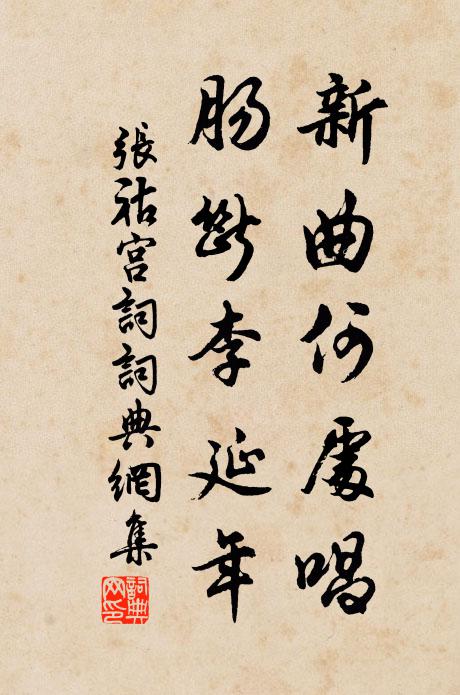 新曲何處唱
腸斷李延年
張祜宮詞詞典網集
詞典网印